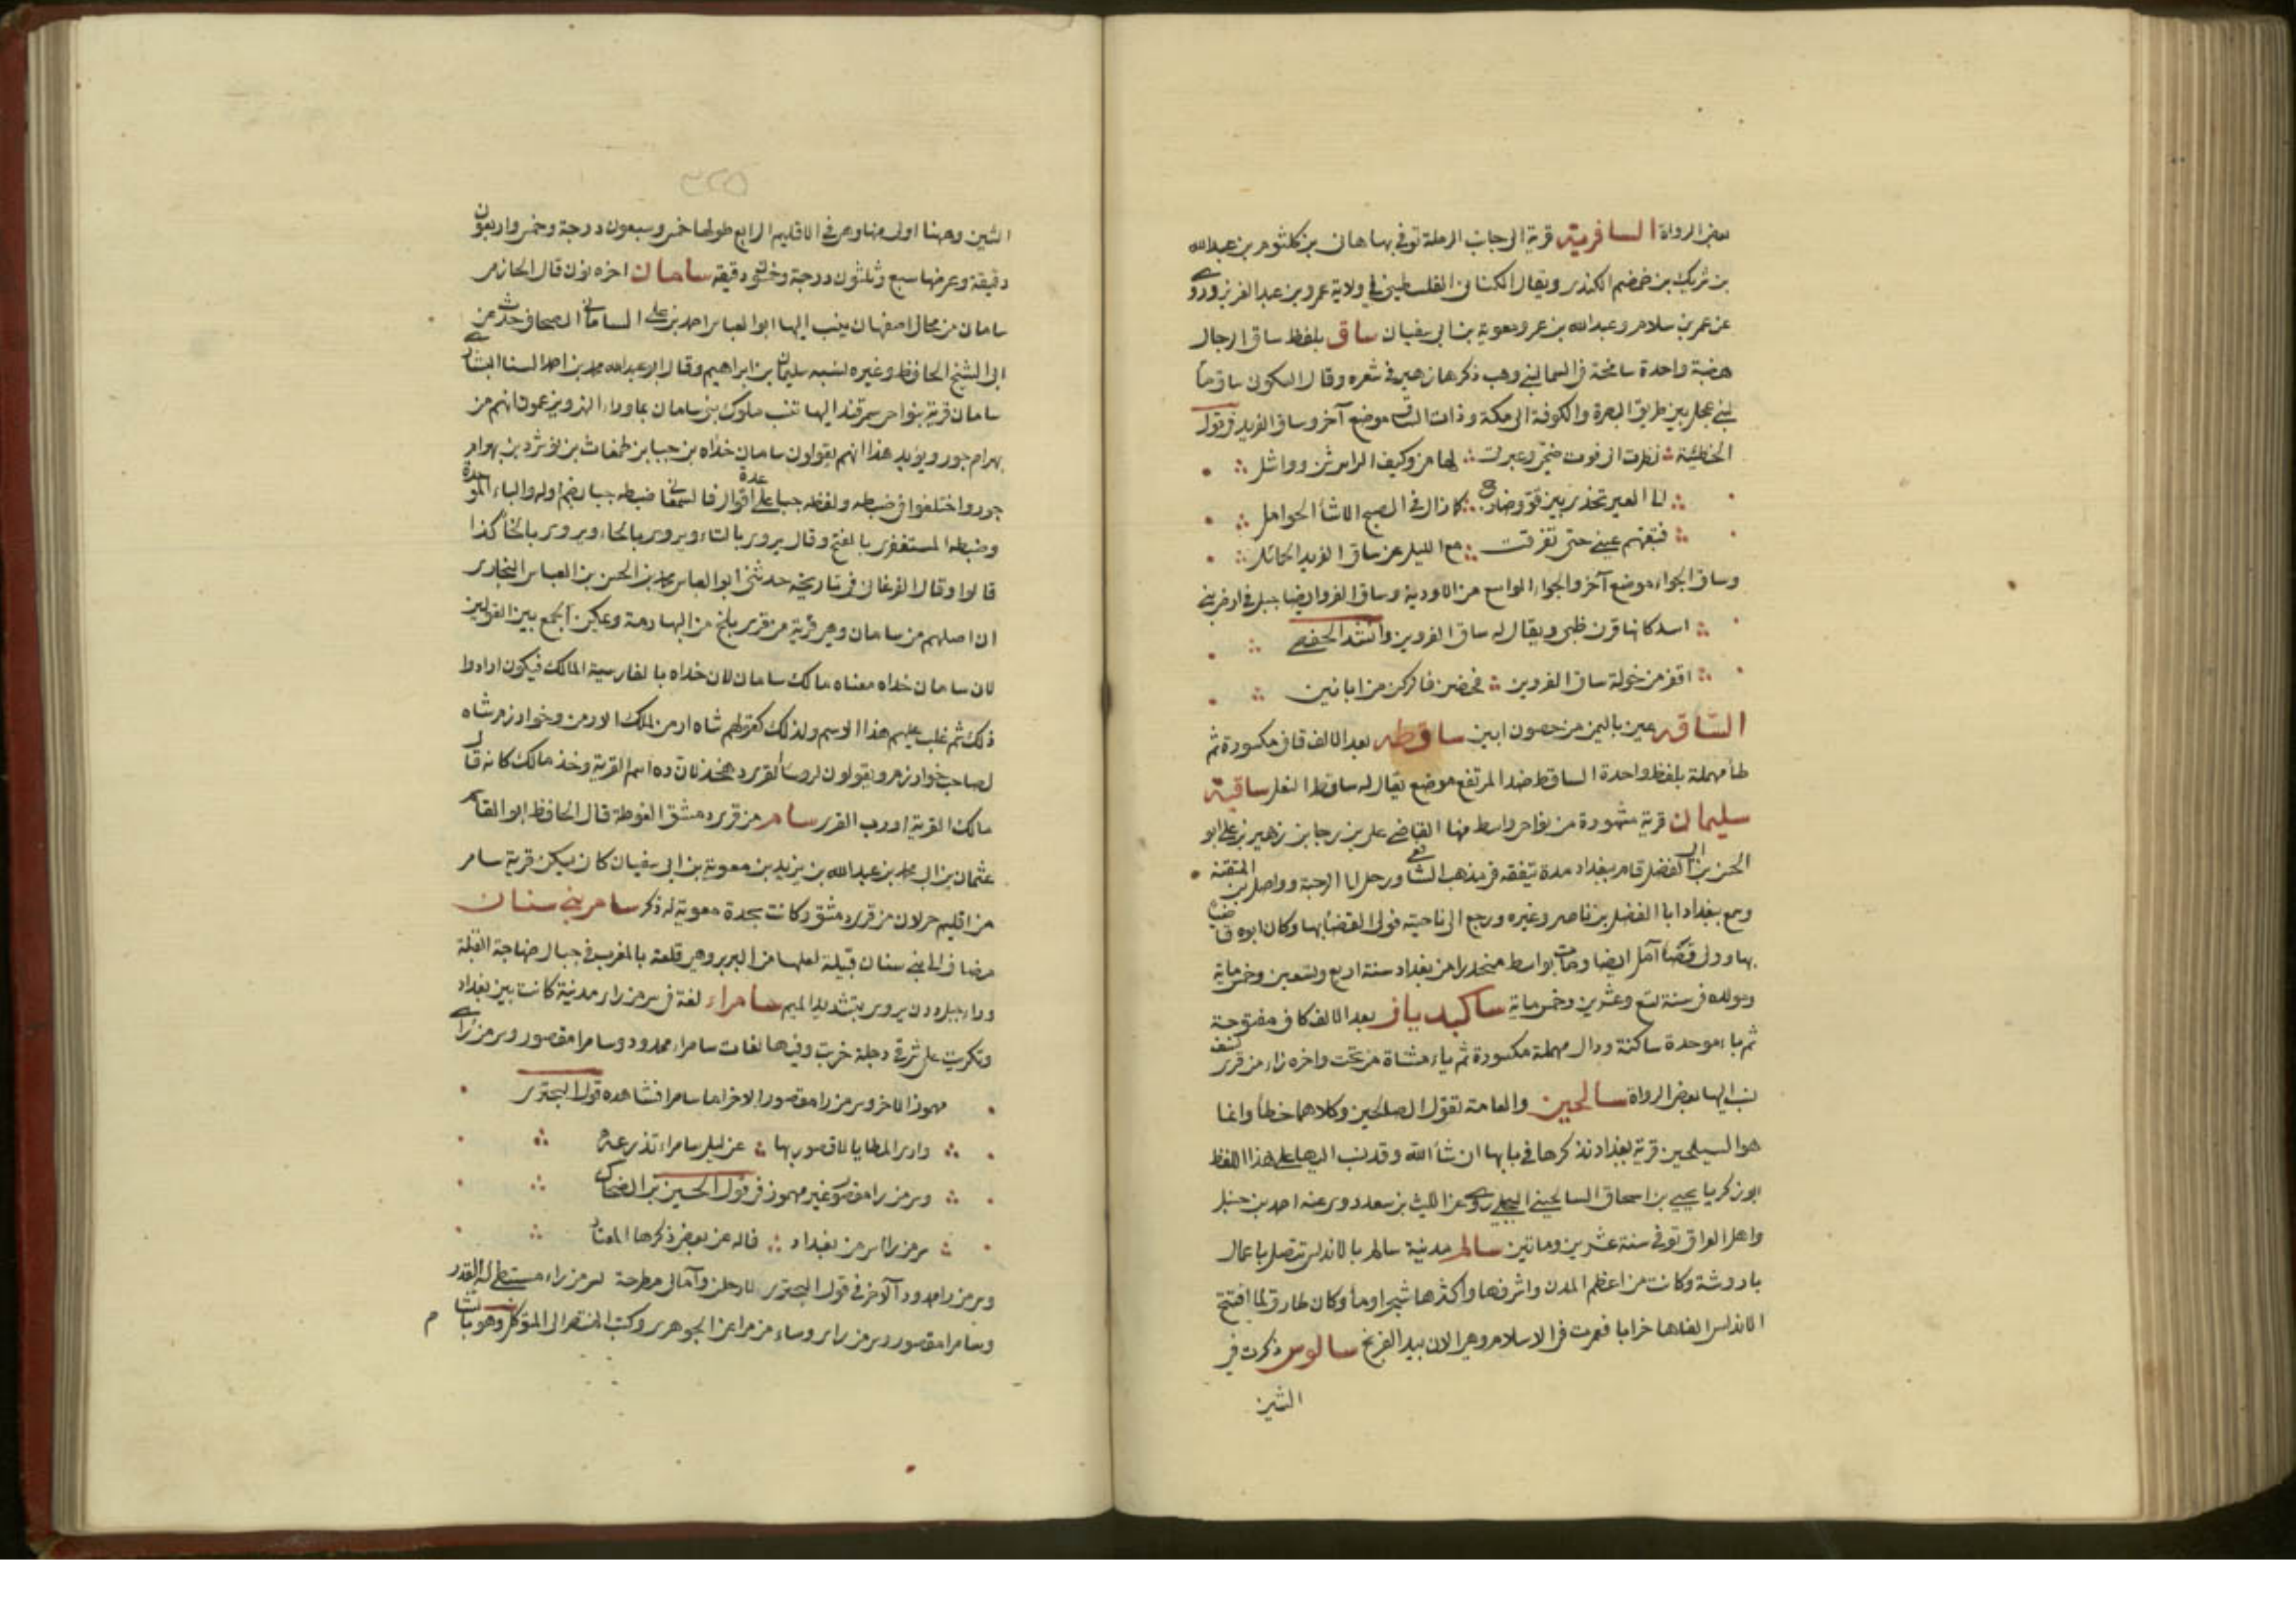 بعض الرواة السافرية قرية الى جانب الرملة توفي بها هان بن كلثوم بن عبدالله
بن شريك بن ضمضم الكندي ويقال الكناني الفلسطيني في ولاية عمر بن عبد العزيز وروى
عن عمر بن سلام وعبدالله بن عمر ومعوية بن ابي سفيان ساق بلفظ ساق الرجال
هضبة واحدة شامخة في السما لبني وهب ذكرها زهير في شعره وقال السكون ساق ما
لبني عجل بين طريق البصرة والكوفة الى مكة وذات الساق موضع آخر وساق الفريد في قول
الحطيئة نظرت الى فوت ضحي وعبرتي لها من وكيف الراس شن وواشل
الى العير تحدى بين قو وضارج كما زال في الصبح الاشأ الحوامل
فتبعتهم عيني حتى تفرقت مع الليل عن ساق الفريد الحائل
وساق الجواء موضع آخر والجواء الواسع من الاودية وساق الفرو ايضا جبل في ارض بني
اسد كانها قرن ظبي ويقال له ساق الفروين وانشد الحفصي
اقفر من خولة ساق الفروين فحضن فالركن من ابانين
الساقه حصن باليمن من حصون ابين ساقطه بعد الالف قاف مكسورة ثم
طأ مهملة بلفظ واحدة الساقط ضد المرتفع موضع يقال له ساقط النعل ساقية
سليمان قرية مشهورة من نواحي واسط منها القاضي علي بن رجا بن زهير بن علي ابو
الحسن بن ابي الفضل قام ببغداد مدة يتفقه في مذهب الشافعي ورحل الى الرحبة وواصل بن المتقنة
وسمع ببغداد ابا الفضل بن ناصر وغيره ورجع الى ناحيته فولى القضا بها وكان ابوه قاضيا
بها وولى قضا آمل ايضا ومات بواسط منحدرا من بغداد سنة اربع وتسعين وخمسماية
ومولده في سنة تسع وعشرين وخمسماية ساكبدياز بعد الالف كاف مفتوحة
ثم باء موحدة ساكنة ودال مهملة مكسورة ثم ياء مثناة من تحت واخره زاء من قرى نسف
نسب اليها بعض الرواة سالحين والعامة تقول الصالحين وكلاهما خطأ وانما
هو السيلحين قرية ببغداد نذكرها في بابها ان شأ الله وقد نسب اليها على هذا اللفظ
ابو زكريا يحيى بن اسحاق السالحيني البجلي روى عن الليث بن سعد روى عنه احمد بن حنبل
واهل العراق توفي سنة عشرين وماتين سالم مدينة سالم بالاندلس تتصل باعمال
باروشة وكانت من اعظم المدن واشرفها واكثرها شجرا وماأ وكان طارق لما افتتح
الاندلس الفاها خرابا فعمرت في الاسلام وهي الان بيد الفرنج سالوس ذكرت في
الشين
٣٢٥
الشين وههنا اولى منها وهي في الاقليم الرابع طولها خمس وسبعون درجة وخمس واربعون
دقيقة وعرضها سبع وثلثون درجة وخمسون دقيقة سامان اخره نون قال الحازمي
سامان من محال اصفهان ينسب اليها ابو العباس احمد بن علي الساماني الصحاف حدث عن
ابي الشيخ الحافظ وغيره نسبه سليمان بن ابراهيم وقال ابو عبدالله محمد بن احمد البنا البشاري
سامان قرية بنواحي سمرقند اليها تنسب ملوك بني سامان بما وراء النهر ويزعمون انهم من
بهرام جور ويؤيد هذا انهم يقولون سامان خداه بن جبا بن طمغاث بن نوشرد بن بهرام
جور واختلفوا في ضبطه ولفظه جبا على عدة اقوال فالسمعاني ضبطه جبا بضم اوله والباء الموحدة
وضبطه المستغفري بالفتح وقال يروى بالتاء ويروى بالحاء ويروى بالخأ كذا
قالوا وقال الفرغاني في تاريخه حدثني ابو العباس محمد بن الحسن بن العباس البخاري
ان اصلهم من سامان وهي قرية من قرى بلخ من البهارمة ويمكن الجمع بين القولين
لان سامان خداه معناه مالك سامان لان خداه بالفارسية المالك فيكون ارادوا
ذلك ثم غلب عليهم هذا الاسم ولذلك كقولهم شاه ارمن لملك الارمن وخوارزم شاه
لصاحب خوارزم ويقولون لروسأ القرى ده خذا لان ده اسم القرية وخذ مالك كانه قال
مالك القرية او رب القرى سام من قرى دمشق الغوطة قال الحافظ ابو القاسم
عثمان بن ابي محمد بن عبدالله بن يزيد بن معوية بن ابي سفيان كان يسكن قرية سام
من اقليم حرلان من قرى دمشق وكانت بجدة معوية له ذكر سام بني سنان
مضاف الى بني سنان قبيلة لعلها من البربر وهي قلعة بالمغرب في جبال صناجة القبلة
وراء جبل درن يروى بتشديد الميم سامراء لغة في سر من راى مدنية كانت بين بغداد
وتكريت على شرقي دجلة خربت وفيها لغات سامراء ممدود وسامرا مقصور وسر من رأى
مهموز الاخر وسر من را مقصور الاخر اما سامرا فشاهده قول البحتري
وارى المطايا لا قصور بها عن ليل سامراء تذرعه
وسر من را مقصور غير مهموز في قول الحسين بن الضحاك
سر من را اسر من بغداد فاله عن بعض ذكرها المعتاد
وسر من راء ممدود الآخر في قول البحتري لارحلن وآمالي مطرحة لسر من راء مستبطي لها القدر
وسامرا مقصور وسر من راى وساء من راى عن الجوهري وكتب المنتصر الى المتوكل وهو بالشام